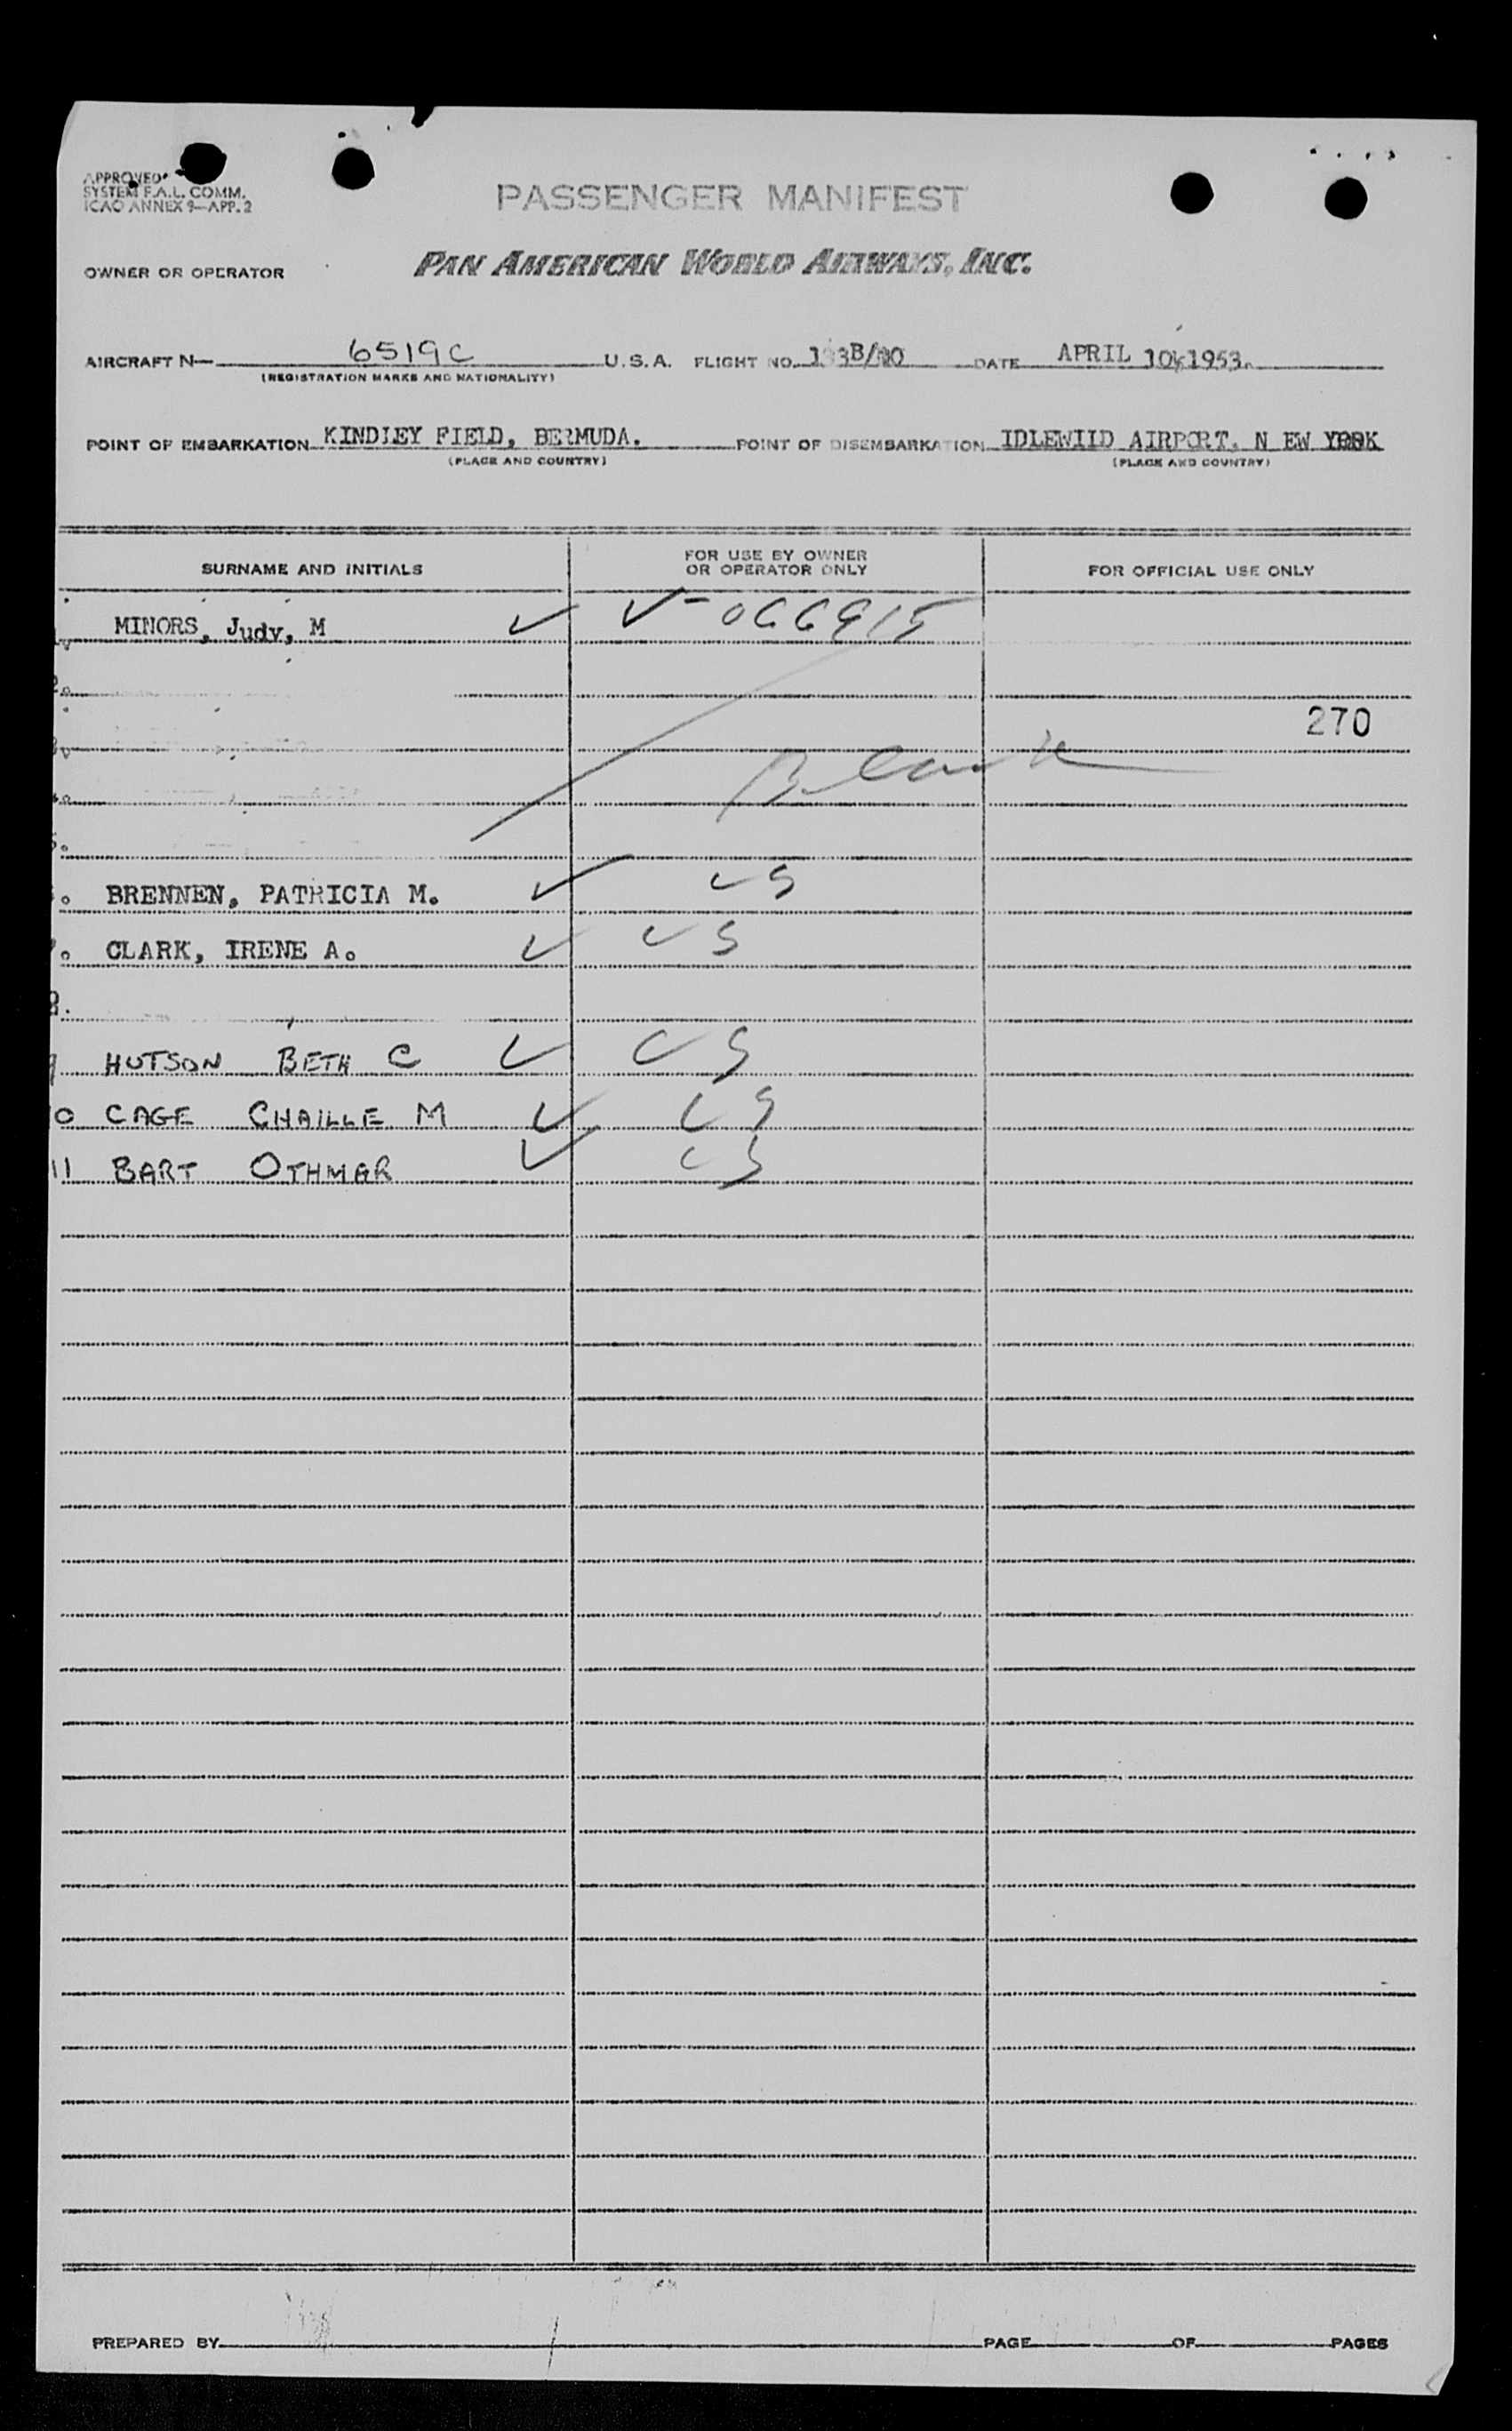 APPROVED
SYSTEM F.A.L. COMM.
ICAO ANNEX 9—APP. 2
PASSENGER MANIFEST
OWNER OR OPERATOR PAN AMERICAN WORLD AIRWAYS, INC.
AIRCRAFT N— 6519C U.S.A. FLIGHT NO. DATE APRIL 10, 1953.
(REGISTRATION MARKS AND NATIONALITY)
POINT OF EMBARKATION KINDLEY FIELD, BERMUDA. POINT OF DISEMBARKATION IDLEWILD AIRPORT. N EW YORK
(PLACE AND COUNTRY) (PLACE AND COUNTRY)
SURNAME AND INITIALS FOR USE BY OWNER OR OPERATOR ONLY FOR OFFICIAL USE ONLY
MINORS, Judy, M ✓ V-066915
270
Blank
BRENNEN, PATRICIA M. ✓ US
CLARK, IRENE A. ✓ US
9 HUTSON BETH C ✓ US
10 CAGE CHAILLE M ✓ US
11 BART OTHMAR ✓ US
PREPARED BY PAGE OF PAGES